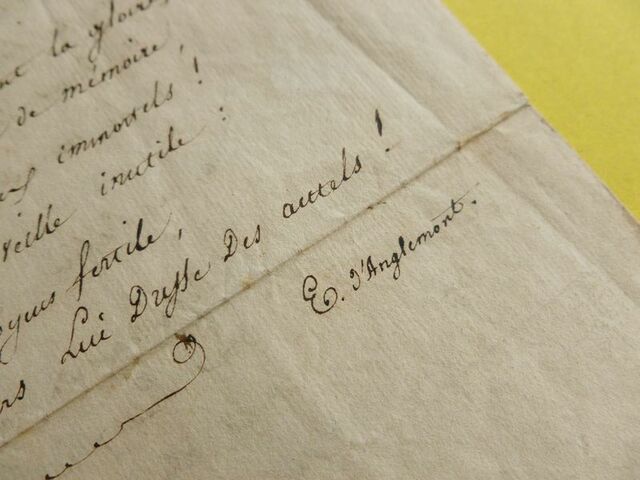 la gloire,
de mémoire,
immortels !
inutile :
fertile,
Lui Dresse Des autels !
E. d'Anglemont.